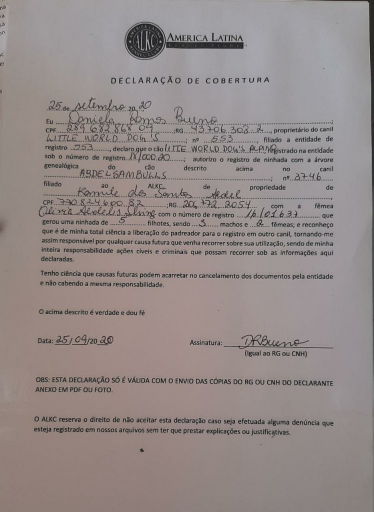 ALKC
AMERICA LATINA
DECLARAÇÃO DE COBERTURA
25 de setembro de 20 20
Eu Daniela Ramos Bueno,
CPF 289 682 868 09 RG 43706 308 2, proprietário do canil
LITTLE WORLD DOG'S nº 553, filiado a entidade de
registro 553, declaro que o cão registrado na entidade
sob o número de registro autorizo o registro da ninhada com a árvore
genealógica do cão descrito acima no canil
ABDELSAMBULLS nº 3746
filiado ao ALKC de propriedade de
Kamile dos Santos Abdel
CPF RG com a fêmea
com o número de registro que
gerou uma ninhada de 5 filhotes, sendo 3 machos e 2 fêmeas; e reconheço
que é de minha total ciência a liberação do padreador para o registro em outro canil, tornando-me
assim responsável por qualquer causa futura que venha recorrer sobre sua utilização, sendo de minha
inteira responsabilidade ações cíveis e criminais que possam recorrer sob as informações aqui
declaradas.
Tenho ciência que causas futuras podem acarretar no cancelamento dos documentos pela entidade
e não cabendo a mesma responsabilidade.
O acima descrito é verdade e dou fé
Data: 25/09/20 20 Assinatura: DRBueno
(Igual ao RG ou CNH)
OBS: ESTA DECLARAÇÃO SÓ É VÁLIDA COM O ENVIO DAS CÓPIAS DO RG OU CNH DO DECLARANTE
ANEXO EM PDF OU FOTO.
O ALKC reserva o direito de não aceitar esta declaração caso seja efetuada alguma denúncia que
esteja registrado em nossos arquivos sem ter que prestar explicações ou justificativas.